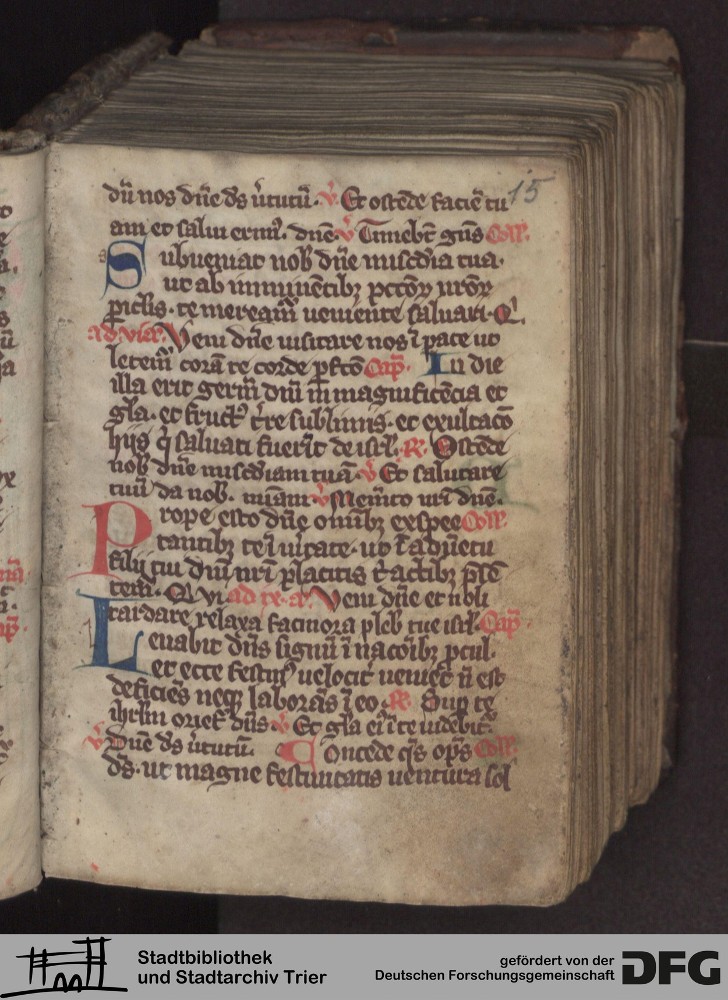 15
dū nos dn̄e ds̄ v̄tutū. v̄ Et ostēde faciē tu
am et salui erim᷑. dn̄e v̄ Timebt̄ gn̄s Coll̄.
Subueniat nob̄ dn̄e mis̄cdia tua.
ut ab imminētibȝ pctōꝝ nrōꝝ
pic̄lis. te meream̄ ueniente saluari. Q
ad vi᷑ a᷑. Veni dn̄e visitare nos ī pace ut
letem̄ corā te corde pfc̄o Cap̄. In die
illa erit germ̄ dn̄i in magnificēcia et
gl̄a. et fruct᷒ t̄re sublimis. et exultac̄o
hijs q̄ saluati fuer̄t de isrl̄. R̄. Ostēde
nob̄ dn̄e mis̄cdiam tuā v̄ Et salutare
tuū da nob̄. v̄ Mem̄to nr̄i dn̄e.
Prope esto dn̄e omībȝ exspec Coll̄.
tantibȝ te ī v̄itate. ut ī aduētu
filij tui dn̄i nr̄i placitis t̄ actibȝ
tem᷑. Q vi ad ix a᷑. Veni dn̄e et noli
tardare relaxa facinora pleb̄ tue isrl̄. Cap̄
Leuabit dn̄s signū ī nac̄oibȝ pcul.
et ecce festin᷒ uelocit᷑ ueniet n̄ est
deficiēs neqȝ laborās ī eo. R̄. Sup te
ihrl̄m oriet᷑ dn̄s. v̄ Et gl̄a ei᷒ ī te uidebit᷑.
v̄ Dn̄e ds̄ v̄tutū. Concede qs̄ op̄s Coll̄
ds̄. ut magne festiuitatis uentura sol
Stadtbibliothek
und Stadtarchiv Trier
gefördert von der
Deutschen Forschungsgemeinschaft
DFG